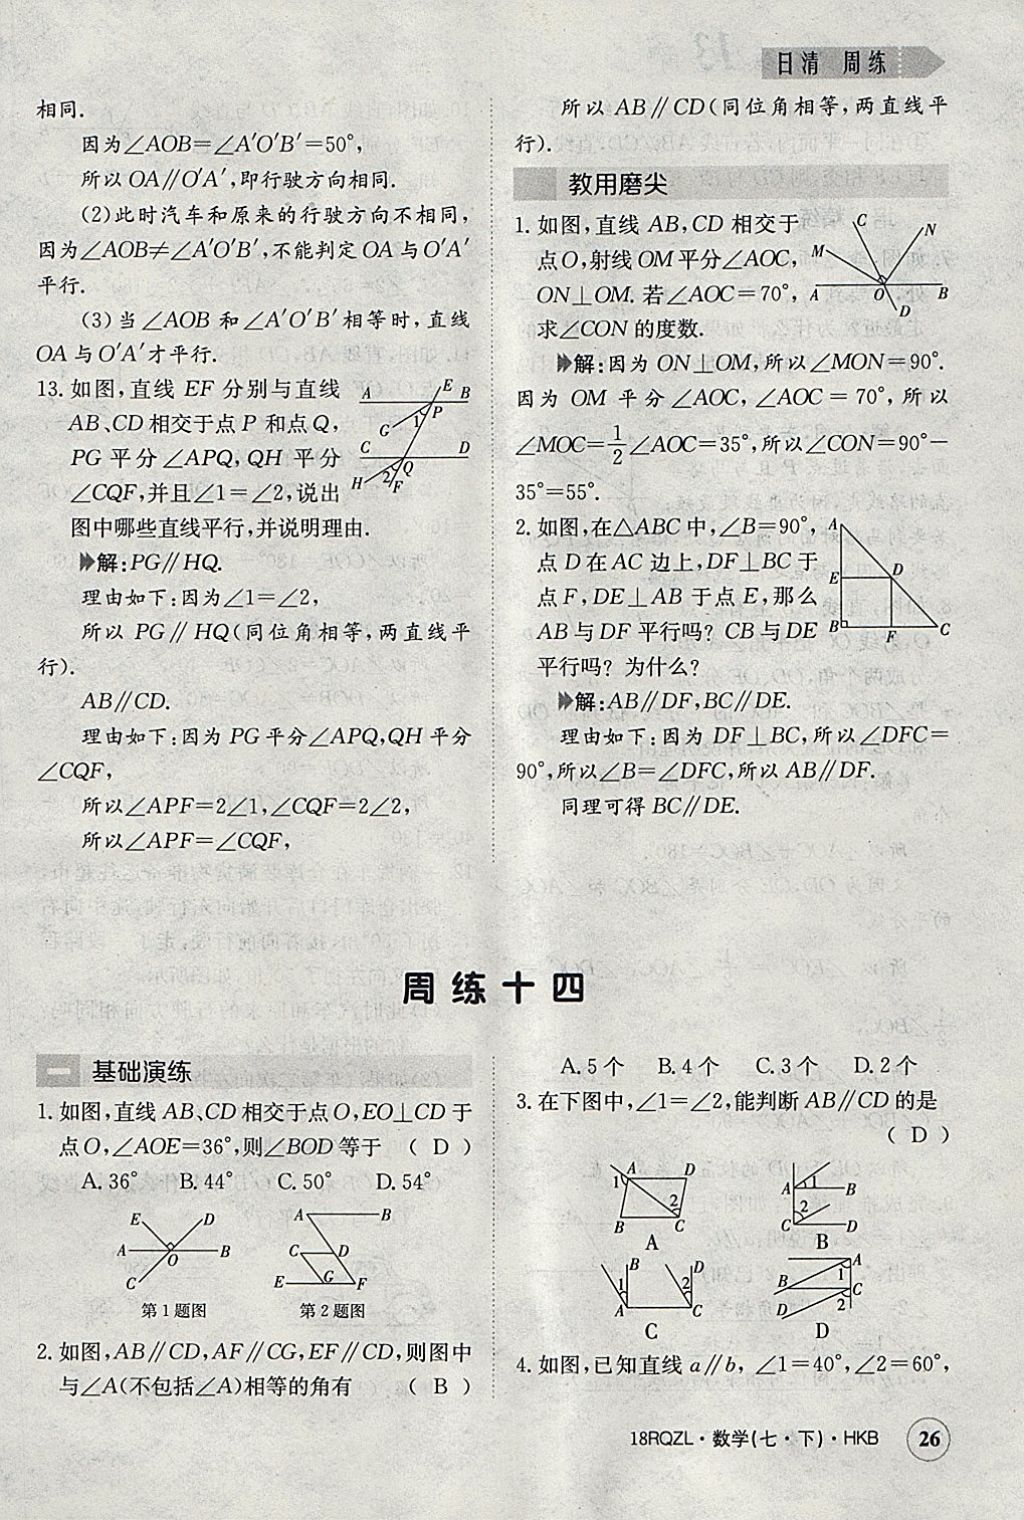 日清 周练
相同.
因为∠AOB=∠A′O′B′=50°,
所以OA∥O′A′,即行驶方向相同.
(2)此时汽车和原来的行驶方向不相同,
因为∠AOB≠∠A′O′B′,不能判定OA与O′A′
平行.
(3)当∠AOB和∠A′O′B′相等时,直线
OA与O′A′才平行.
13.如图,直线 EF 分别与直线
AB、CD相交于点P 和点Q,
PG平分∠APQ,QH平分
∠CQF,并且∠1=∠2,说出
图中哪些直线平行,并说明理由.
A E B
G 1 P
C D
H 2 Q
F
解:PG∥HQ.
理由如下:因为∠1=∠2,
所以 PG∥HQ(同位角相等,两直线平
行).
AB∥CD.
理由如下:因为PG平分∠APQ,QH平分
∠CQF,
所以∠APF=2∠1,∠CQF=2∠2,
所以∠APF=∠CQF,
所以AB∥CD(同位角相等,两直线平
行).
教用磨尖
1.如图,直线 AB,CD 相交于
点O,射线OM平分∠AOC,
ON⊥OM.若∠AOC=70°,
求∠CON的度数.
C N
M
A O B
D
解:因为ON⊥OM,所以∠MON=90°.
因为 OM 平分∠AOC,∠AOC=70°,所以
∠MOC=1/2∠AOC=35°,所以∠CON=90°−
35°=55°.
2.如图,在△ABC中,∠B=90°,
点D在AC边上,DF⊥BC于
点F,DE⊥AB于点E,那么
AB与DF平行吗? CB与DE
平行吗? 为什么?
A
E D
B F C
解:AB∥DF,BC∥DE.
理由如下:因为DF⊥BC,所以∠DFC=
90°,所以∠B=∠DFC,所以AB∥DF.
同理可得BC∥DE.
周练十四
一 基础演练
1.如图,直线AB、CD相交于点O,EO⊥CD于
点O,∠AOE=36°,则∠BOD等于 ( D )
A.36° B.44° C.50° D.54°
E D
A O B
C
第1题图
A B
C D
E G F
第2题图
2.如图,AB∥CD,AF∥CG,EF∥CD,则图中
与∠A(不包括∠A)相等的角有 ( B )
A.5个 B.4个 C.3个 D.2个
3.在下图中,∠1=∠2,能判断AB∥CD的是
( D )
A D
1 2
B C
A
A 1 B
2
C D
B
B D
1 2
A C
C
A
B 1 C
D 2
D
4.如图,已知直线a∥b,∠1=40°,∠2=60°,
18RQZL·数学(七·下)·HKB 26